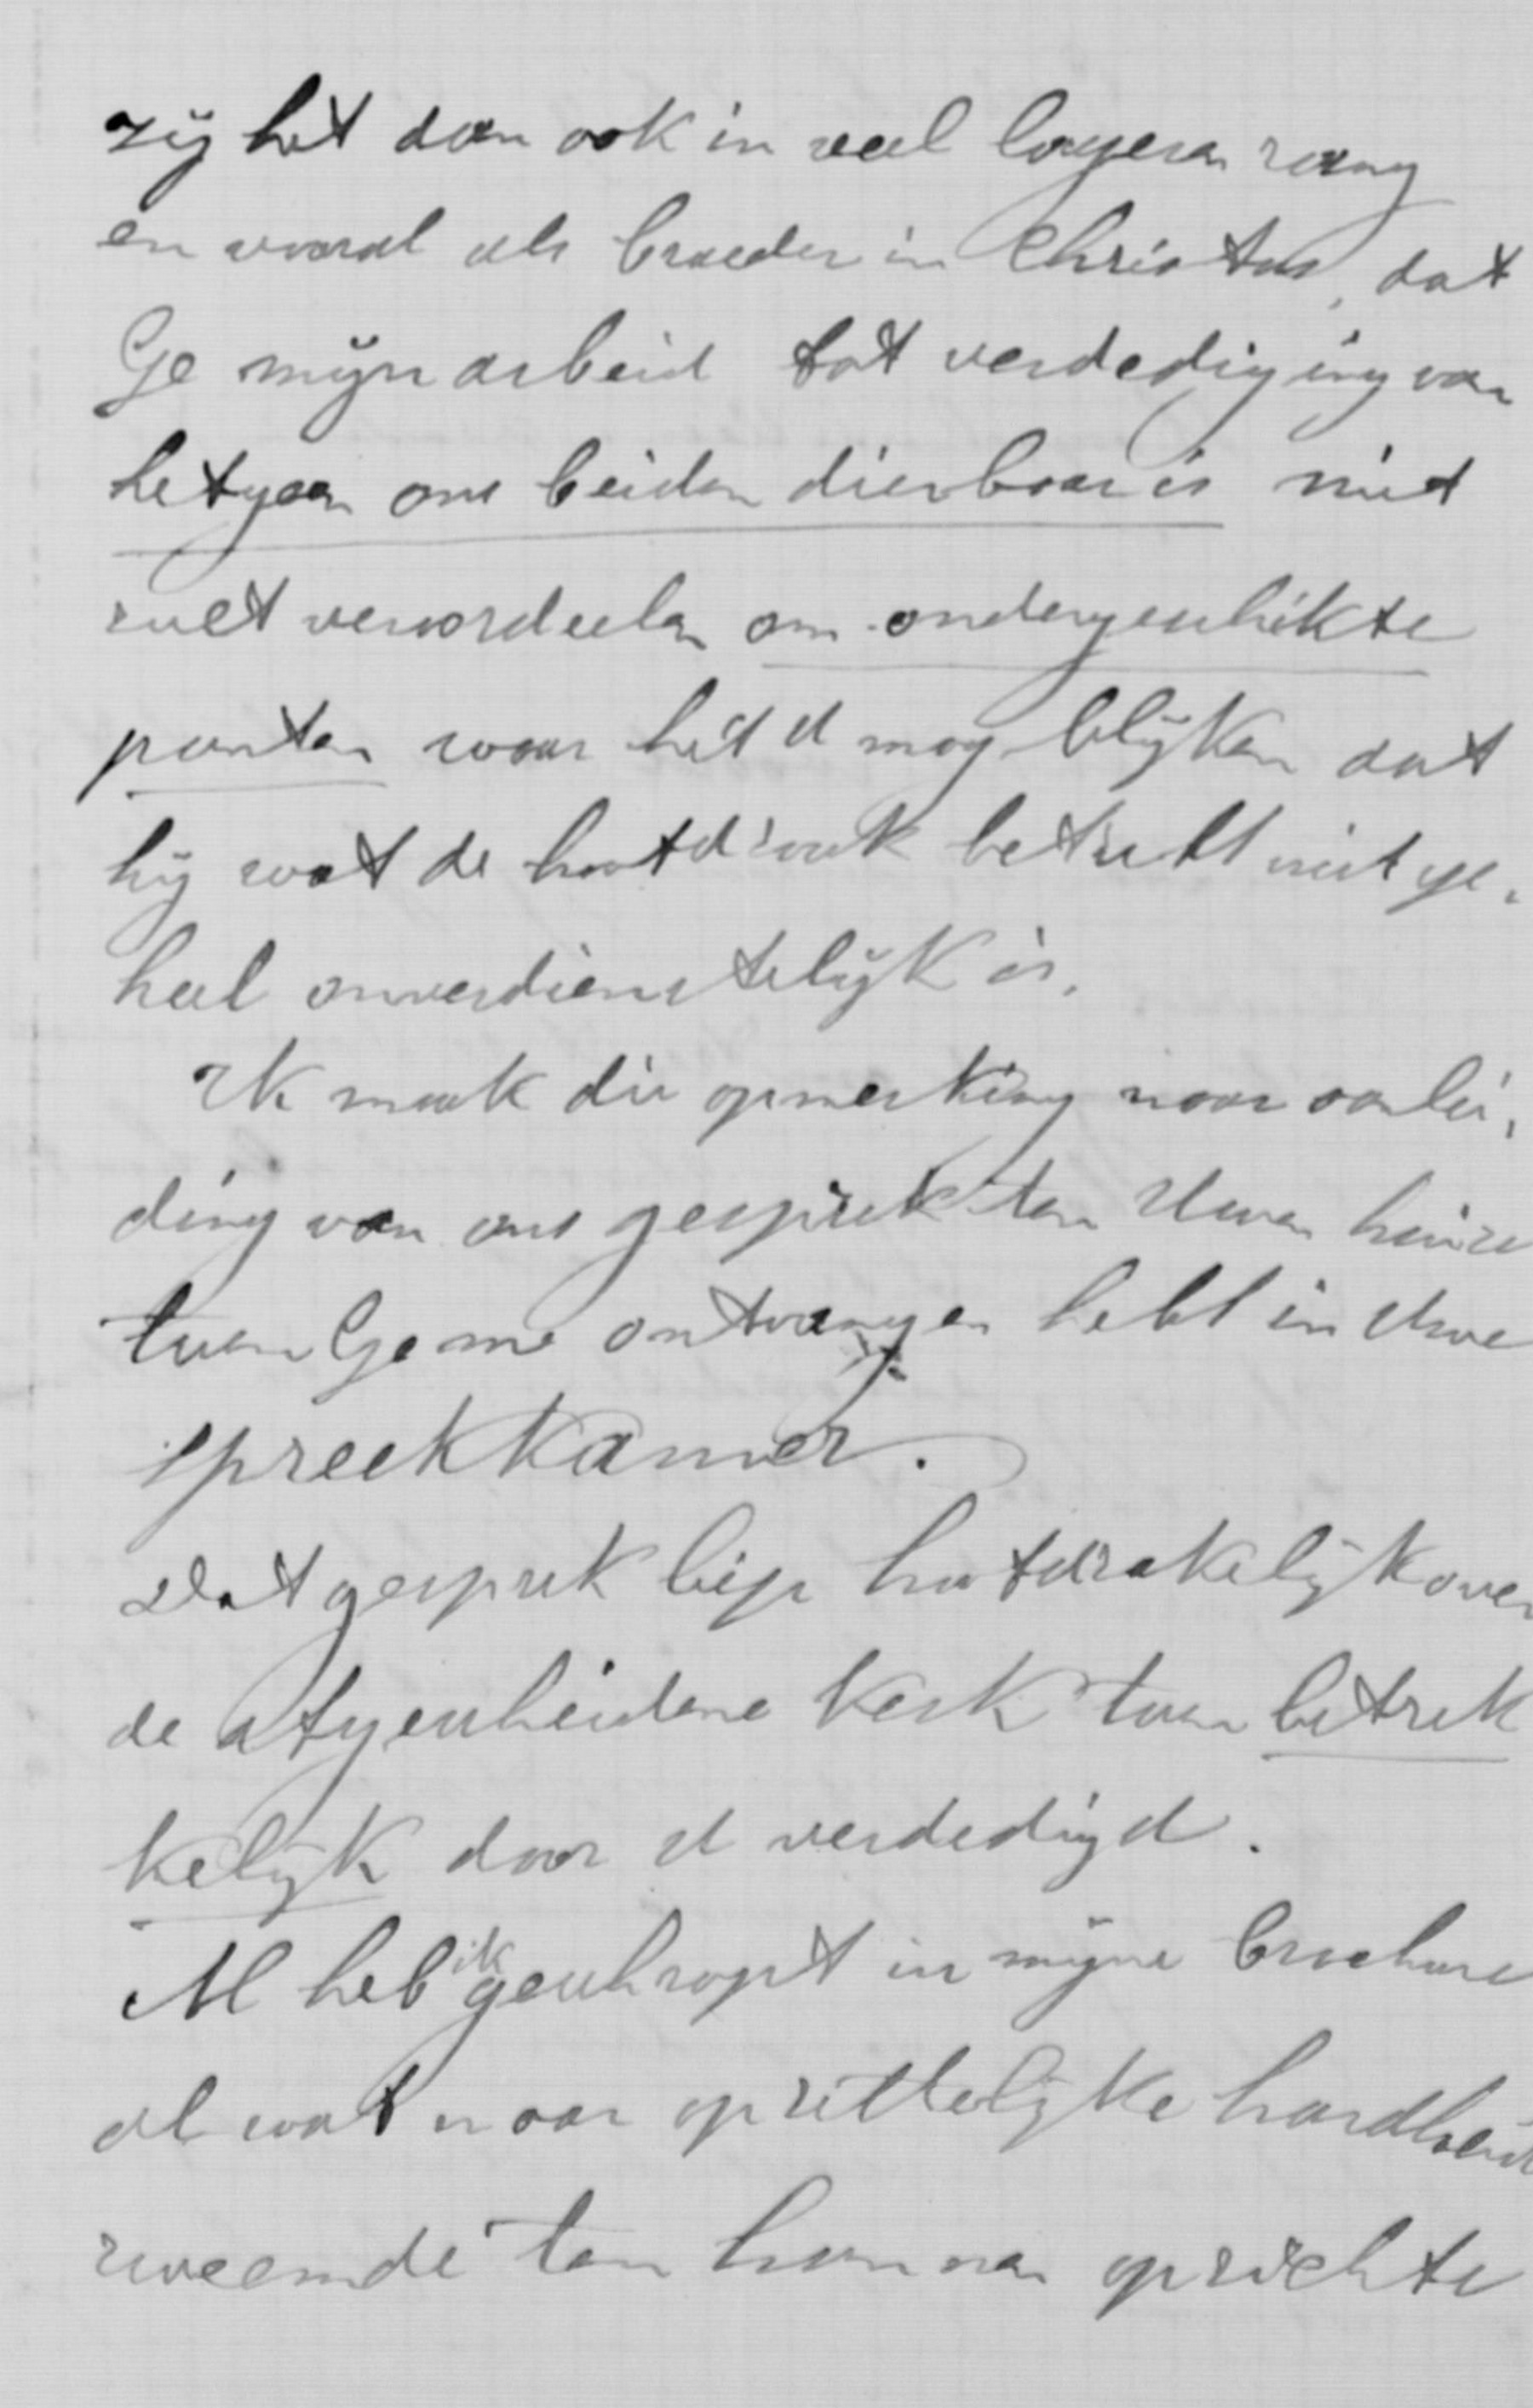 zij het dan ook in veel lageren rang
en vooral als broeder in Christus, dat
Ge mijn arbeid tot verdediging van
hetgeen ons beiden dierbaar is niet
zult veroordeelen om ondergeschikte
punten waar het U mag blijken dat
hij wat de hoofdzaak betreft niet ge-
heel onverdienstelijk is.
Ik maak die opmerking naar aanlei-
ding van ons gesprek ten Uwen huize
toen Ge me ontvangen hebt in Uwe
spreekkamer.
Dat gesprek liep hoofdzakelijk over
de afgescheidene Kerk toen betrek
kelijk door U verdedigd.
Al heb ik geschrapt in mijne brochure
al wat naar opzettelijke hardheid
zweemde ten hunnen opzichte